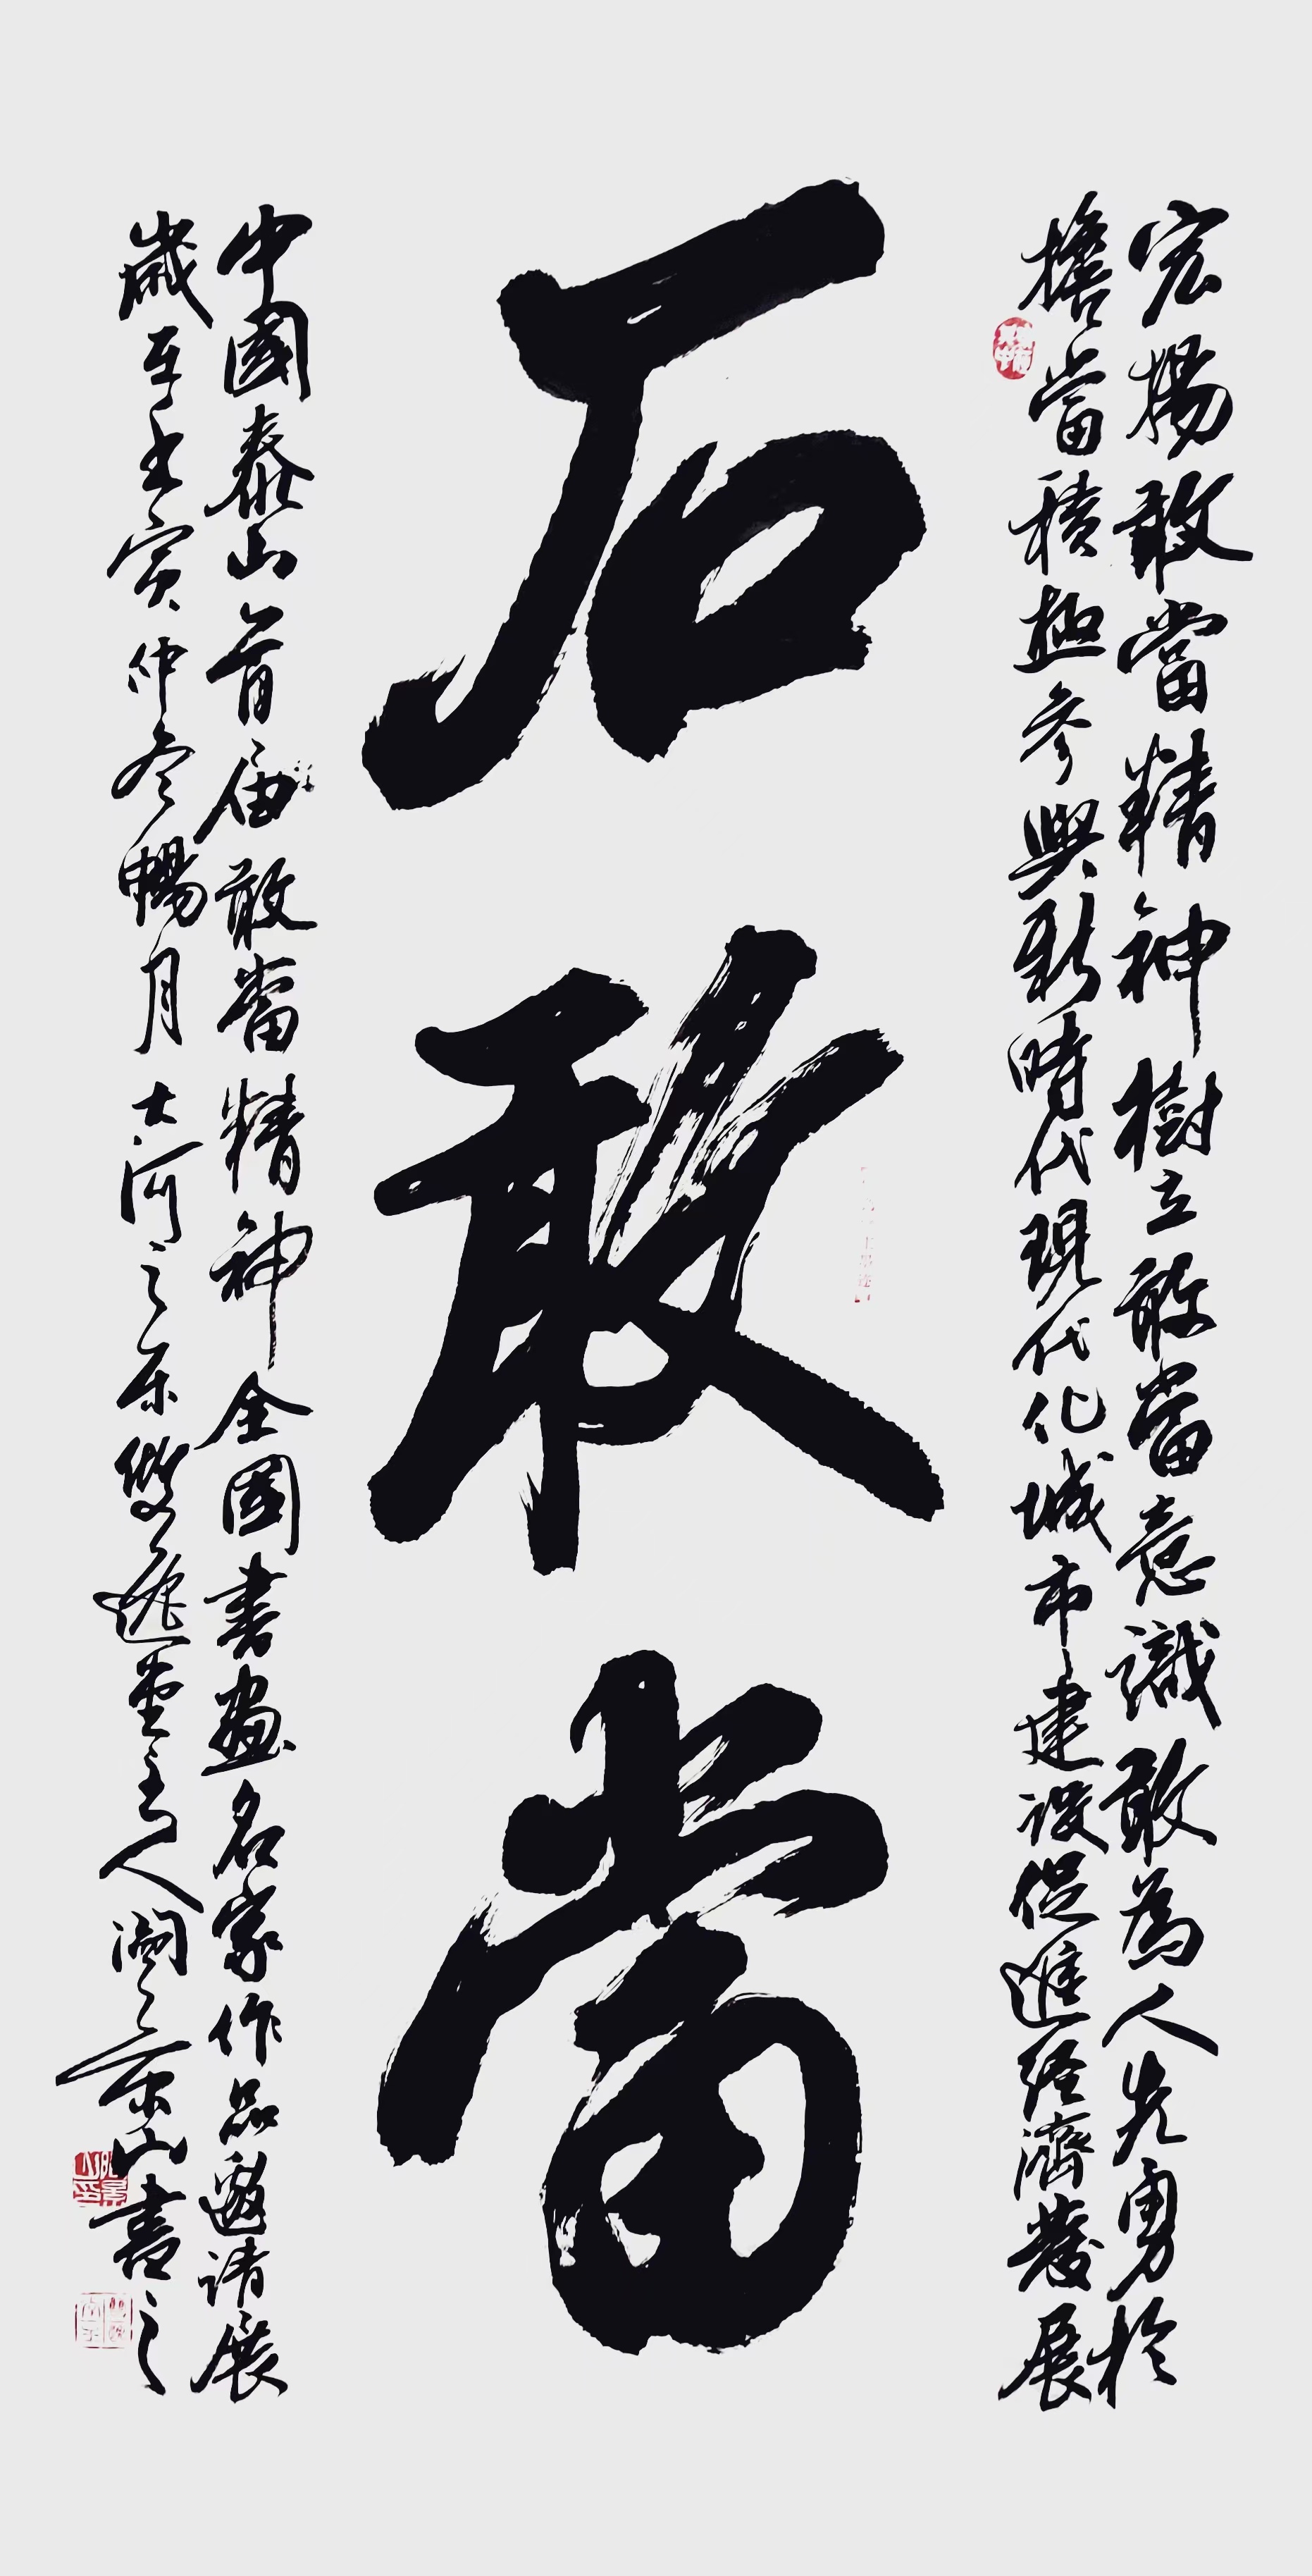 宏揚敢當精神樹立敢當意識敢為人先勇於
擔當積極参與新時代現代化城市建设促進经濟發展
石敢當
中國泰山首届敢當精神全國書畫名家作品邀请展
歲在壬寅仲冬暢月大河之东雙逸堂主人闾景山書之